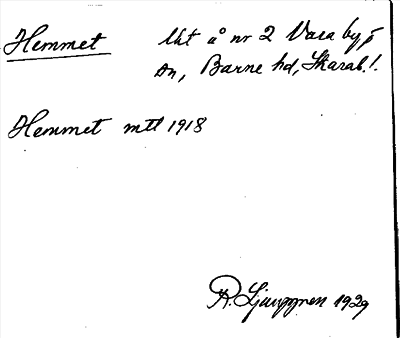 Hemmet Ukt å nr 2 Vara by,
sn, Barne hd, Skarab. l.
Hemmet mtl 1918
R. Ljunggren 1929